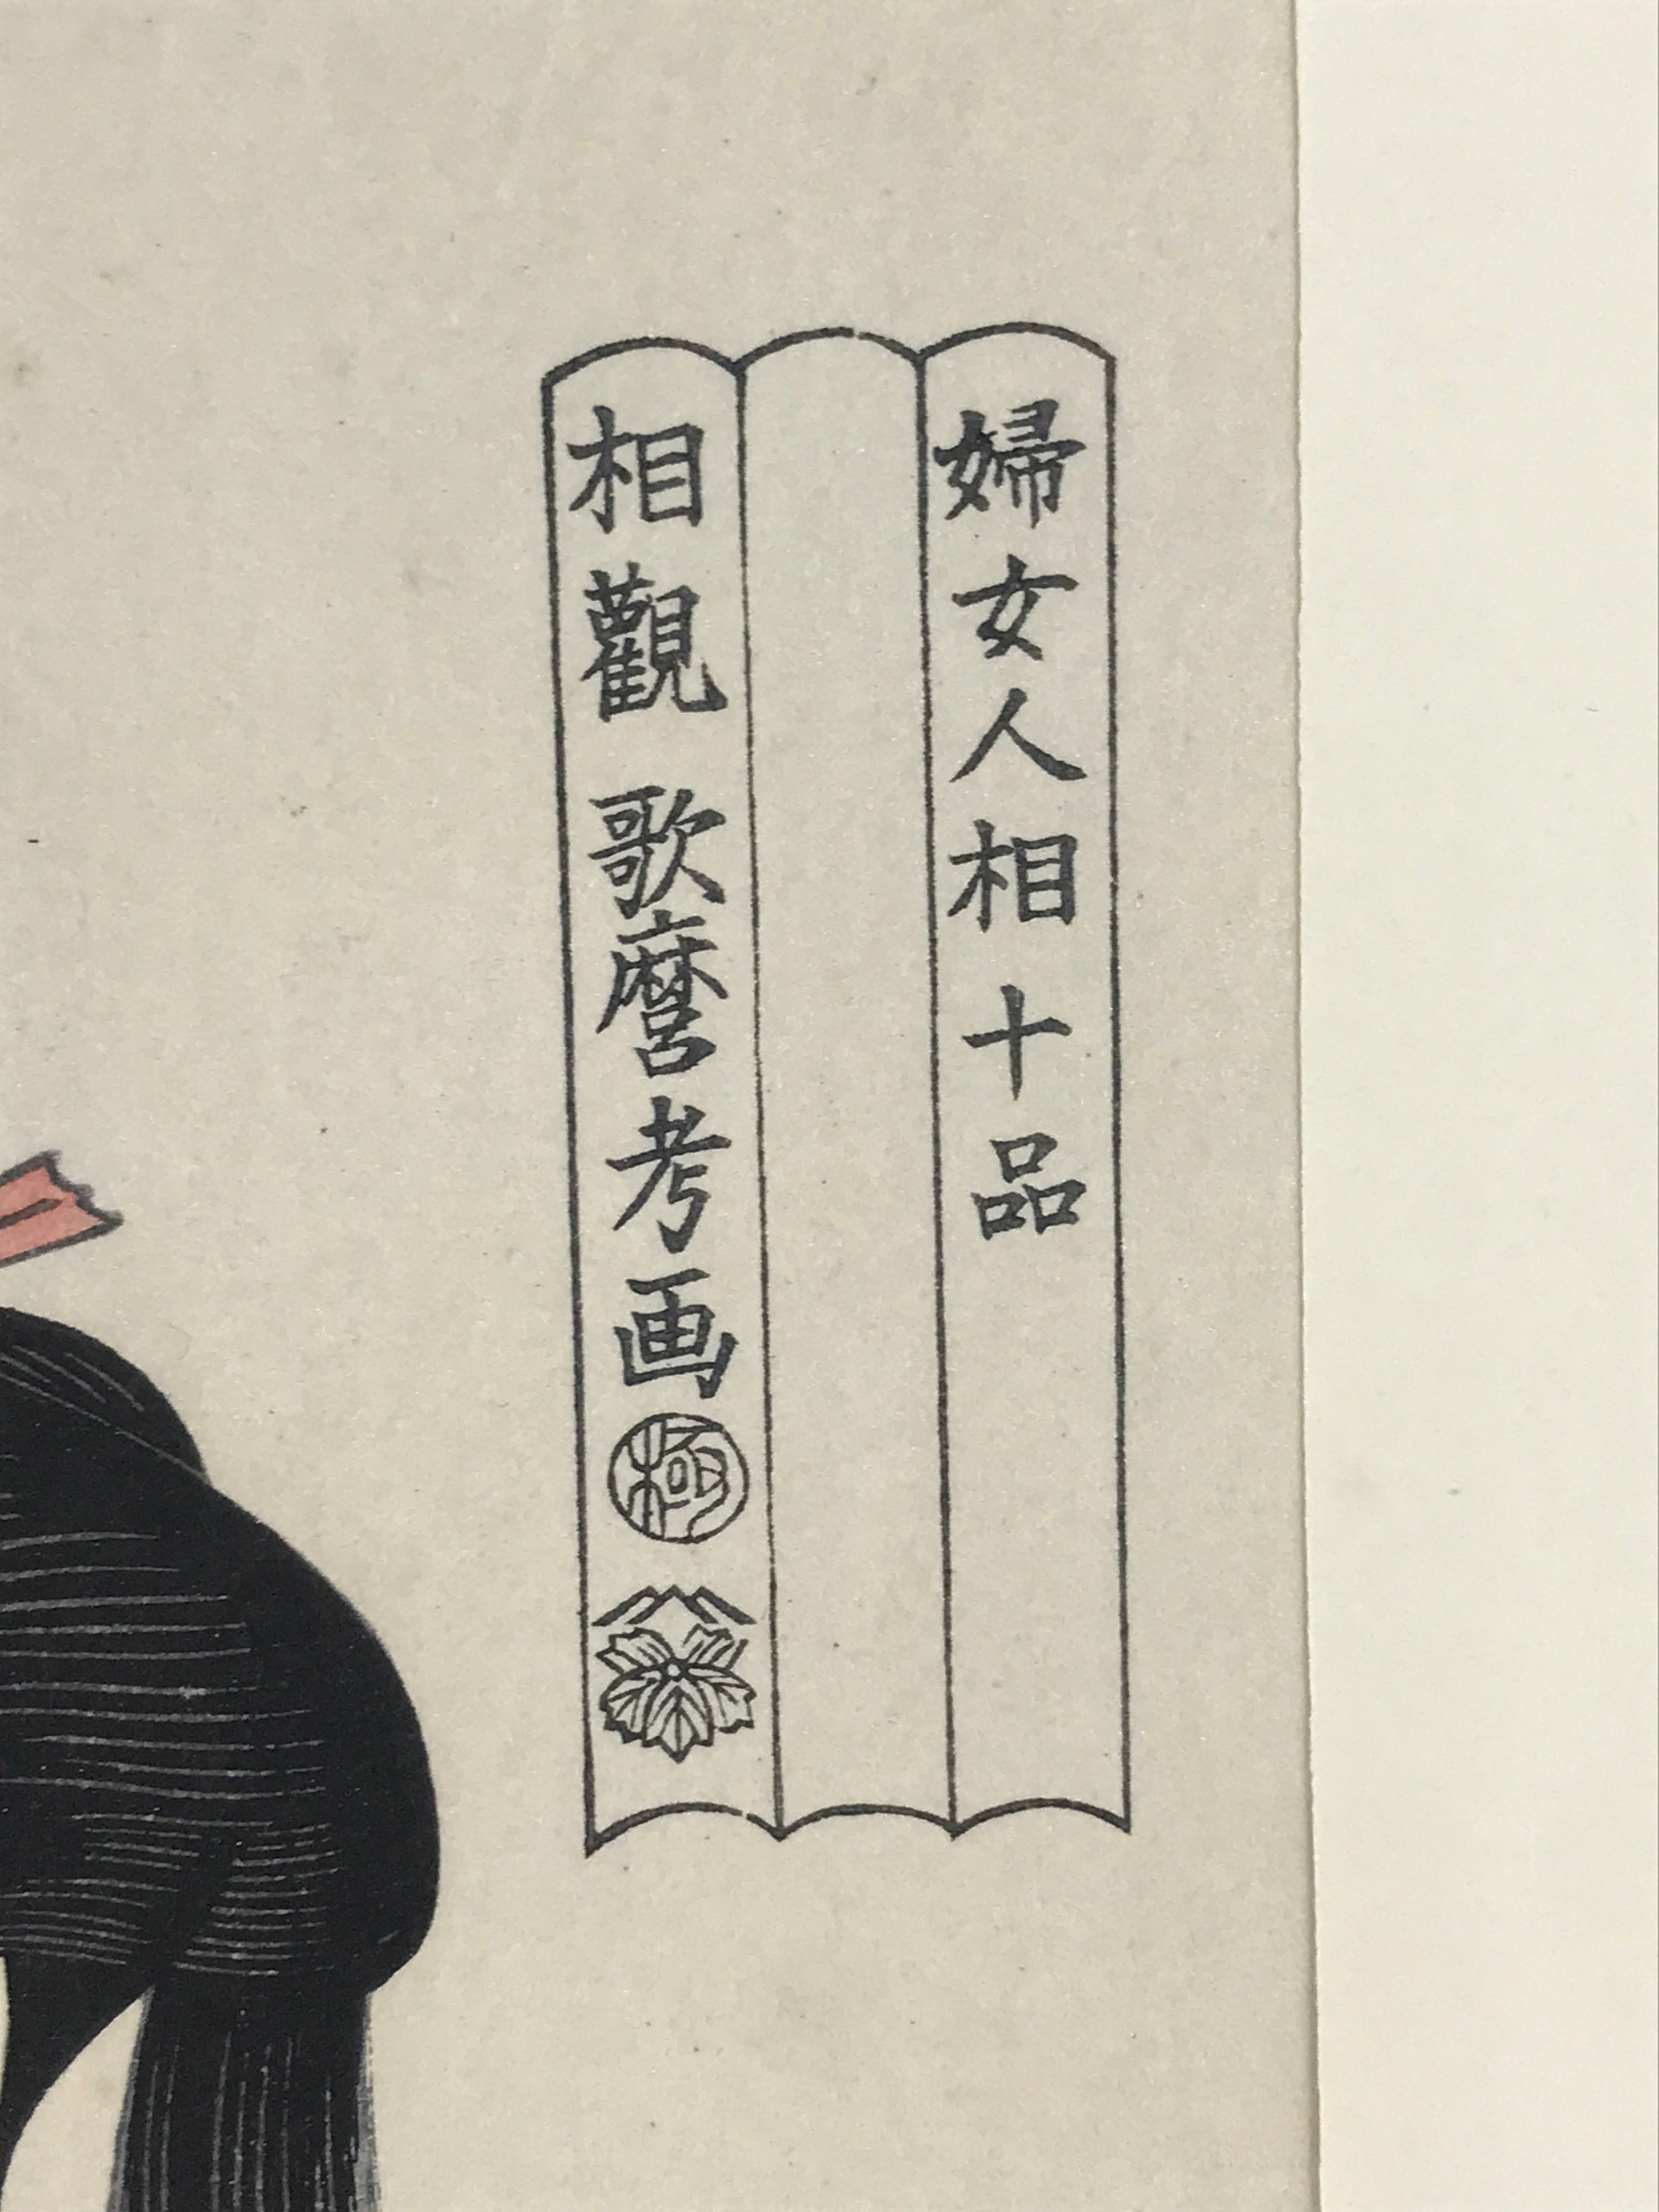 婦女人相十品
相觀歌麿考画
極